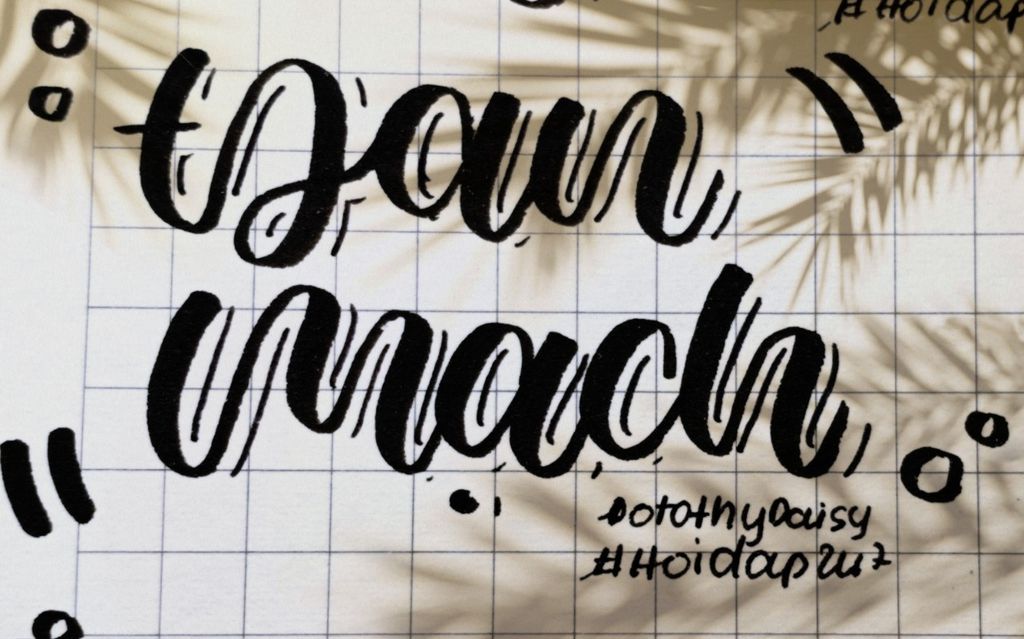 #Hoidap
Đan
Mạch
DorothyDaisy
#Hoidap247